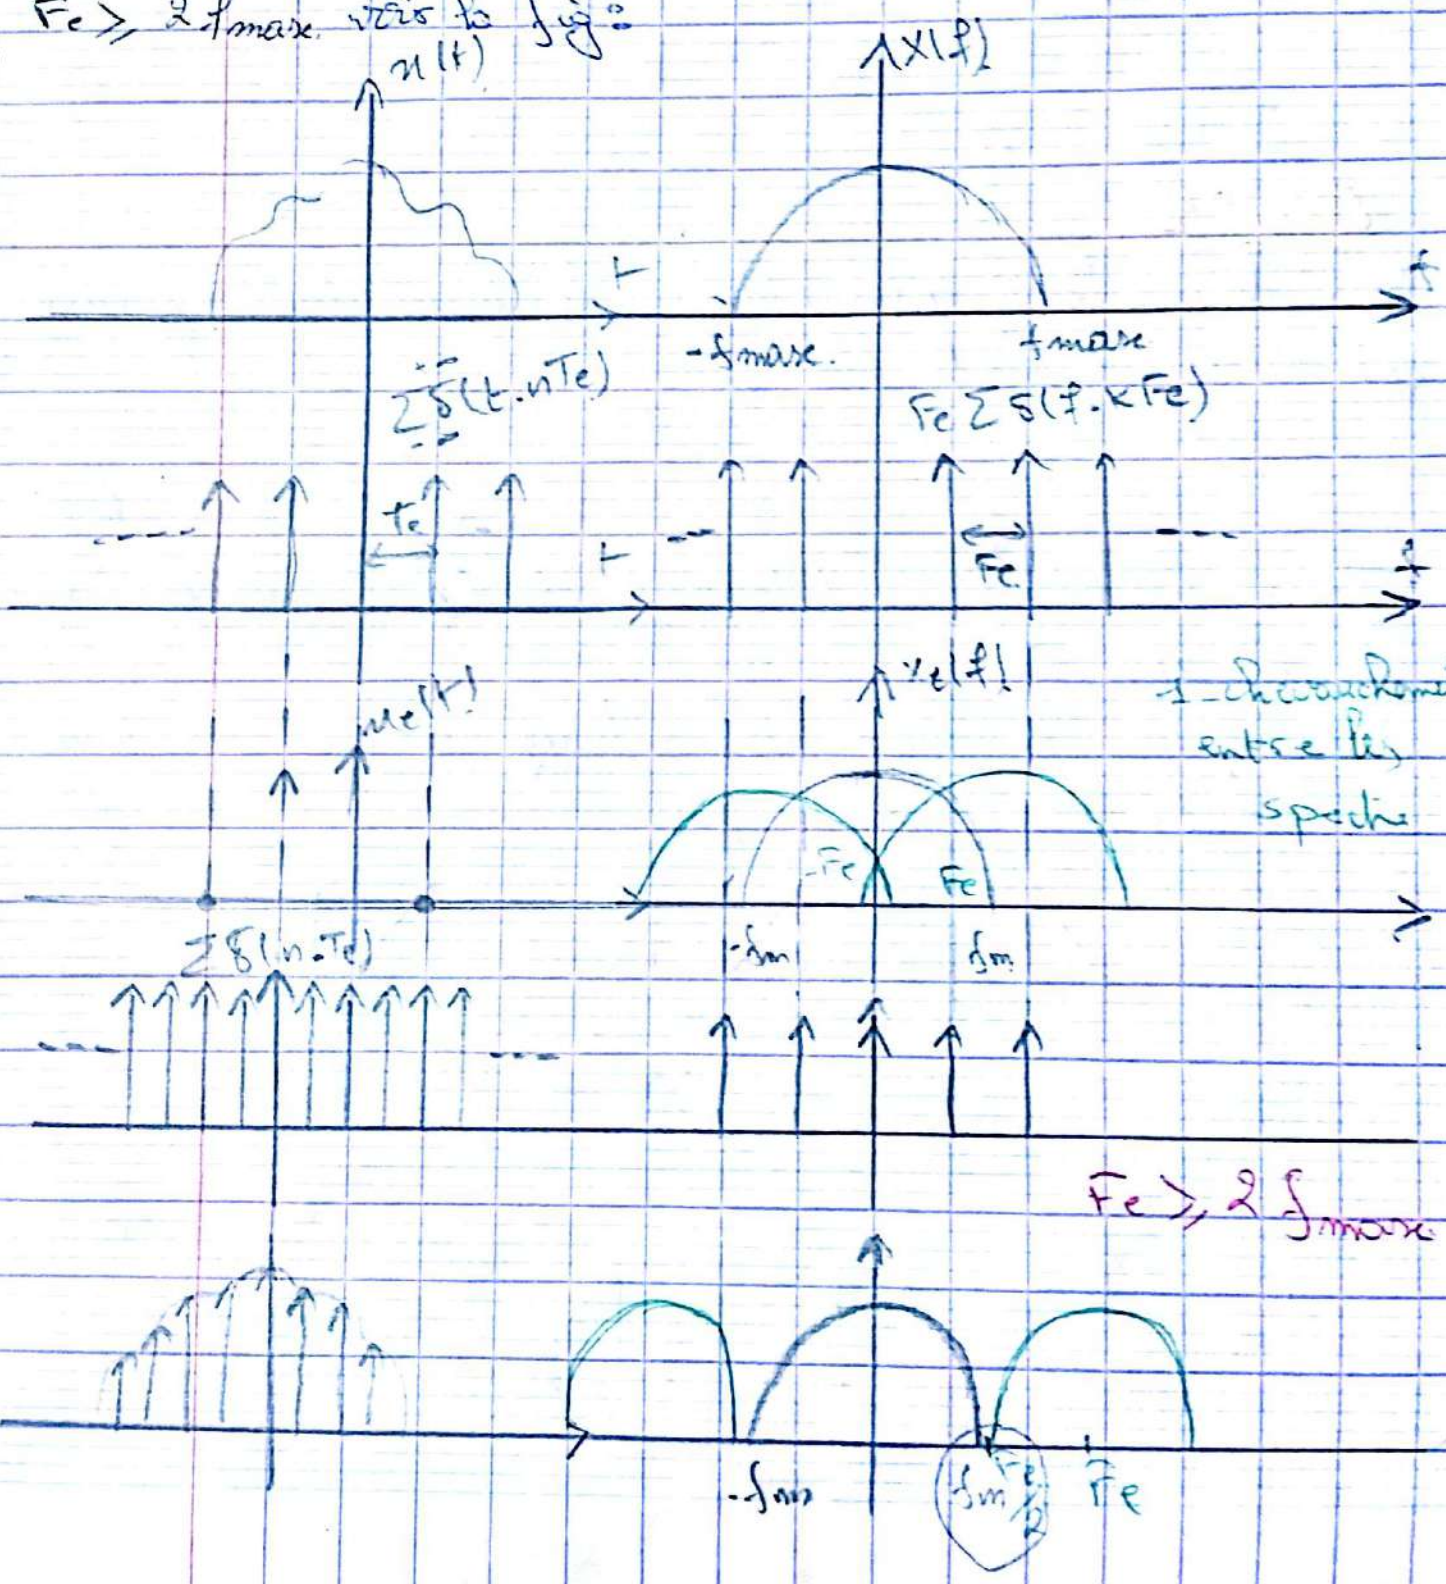 Fe ≥ 2 fmax. voir la fig:
x(t)
X(f)
t
f
-fmax.
fmax
∑ δ(t-nTe)
Fe ∑ δ(f-kFe)
Te
t
Fe
f
xe(t)
Xe(f)
1-chevaucheme
entre les
spectre
-Fe
Fe
-fm
fm
∑ δ(n-Te)
Fe ≥ 2 fmax
-fm
fm
Fe/2
Fe